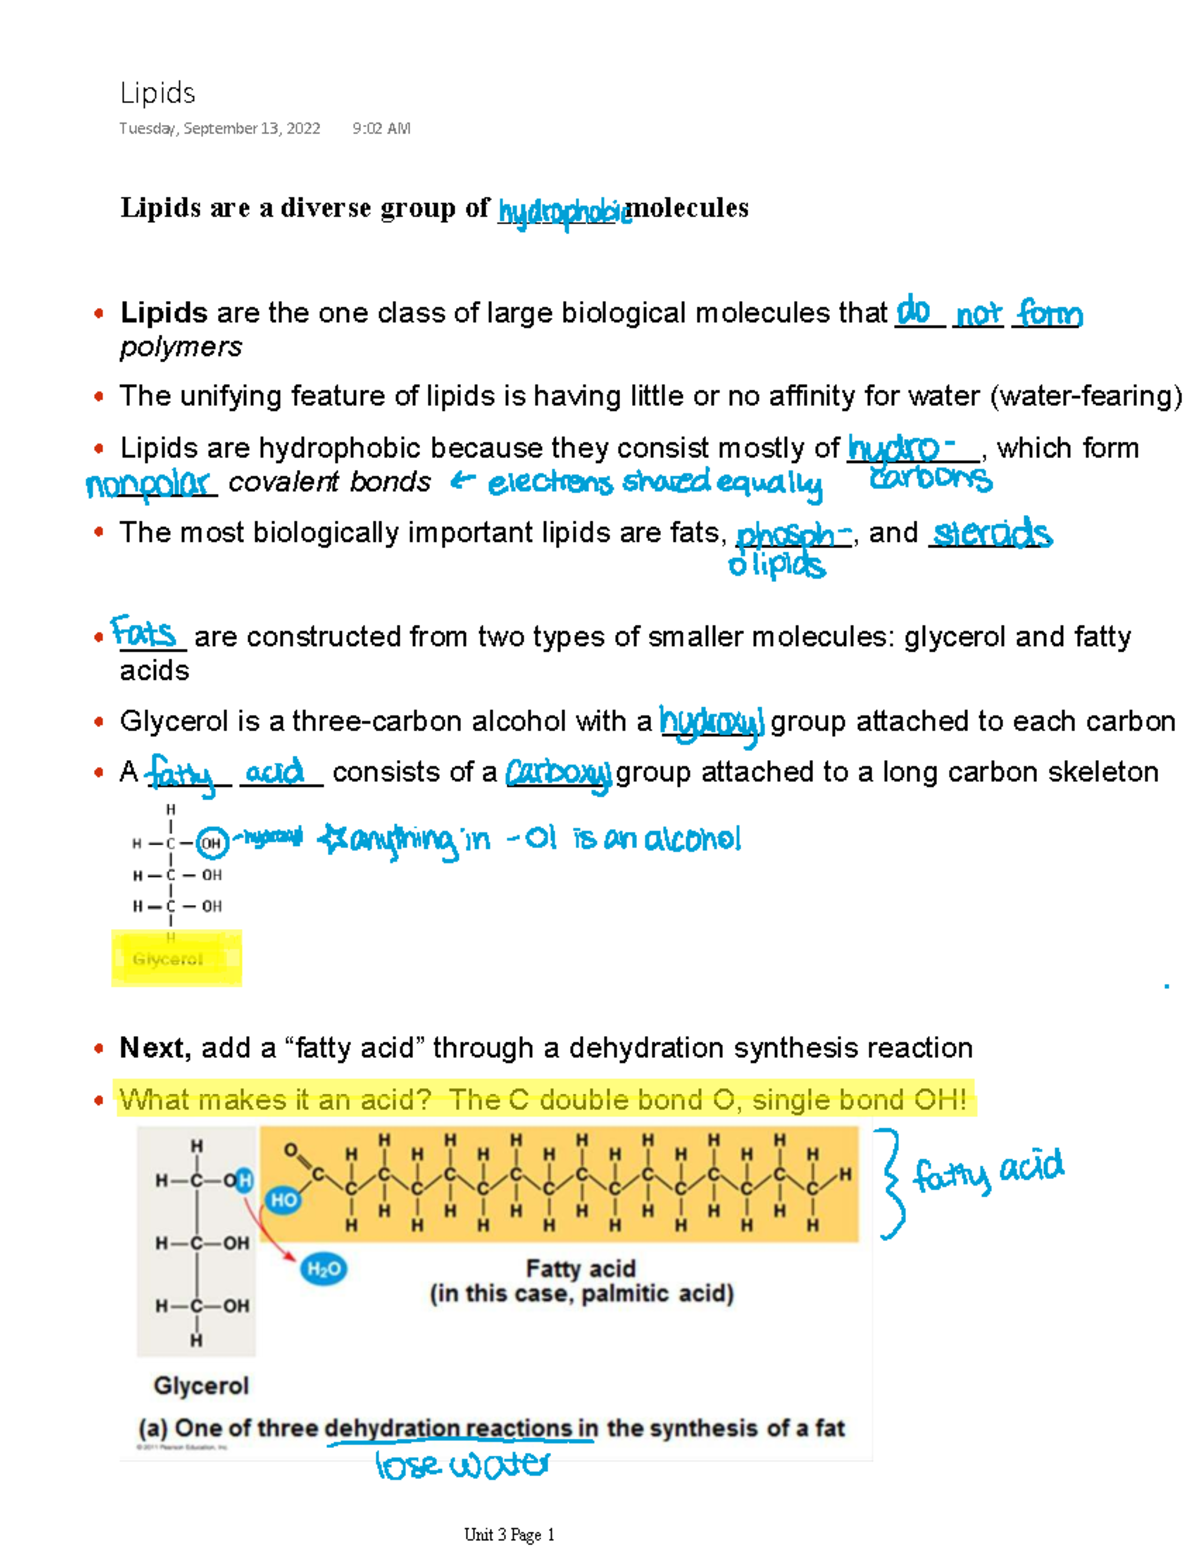 Lipids
Tuesday, September 13, 2022 9:02 AM
Lipids are a diverse group of hydrophobic molecules
• Lipids are the one class of large biological molecules that do not form
polymers
• The unifying feature of lipids is having little or no affinity for water (water-fearing)
• Lipids are hydrophobic because they consist mostly of hydro-, which form
carbons
nonpolar covalent bonds ← electrons shared equally
• The most biologically important lipids are fats, phosph-, and steroids
olipids
• Fats are constructed from two types of smaller molecules: glycerol and fatty
acids
• Glycerol is a three-carbon alcohol with a hydroxyl group attached to each carbon
• A fatty acid consists of a carboxyl group attached to a long carbon skeleton
H
H — C — OH - hydroxyl ☆ anything in -ol is an alcohol
H — C — OH
H — C — OH
H
Glycerol
• Next, add a “fatty acid” through a dehydration synthesis reaction
• What makes it an acid? The C double bond O, single bond OH!
H O H H H H H H H H H H H H H H H
H—C—OH HO C C C C C C C C C C C C C C C C H
H H H H H H H H H H H H H H H
fatty acid
H—C—OH
H₂O
Fatty acid
(in this case, palmitic acid)
H—C—OH
H
Glycerol
(a) One of three dehydration reactions in the synthesis of a fat
© 2011 Pearson Education, Inc.
lose water
Unit 3 Page 1